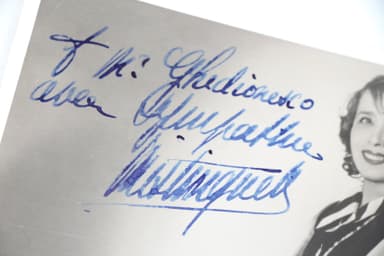 à Mr Ghedionesco
avec Sympathie
Mistinguett